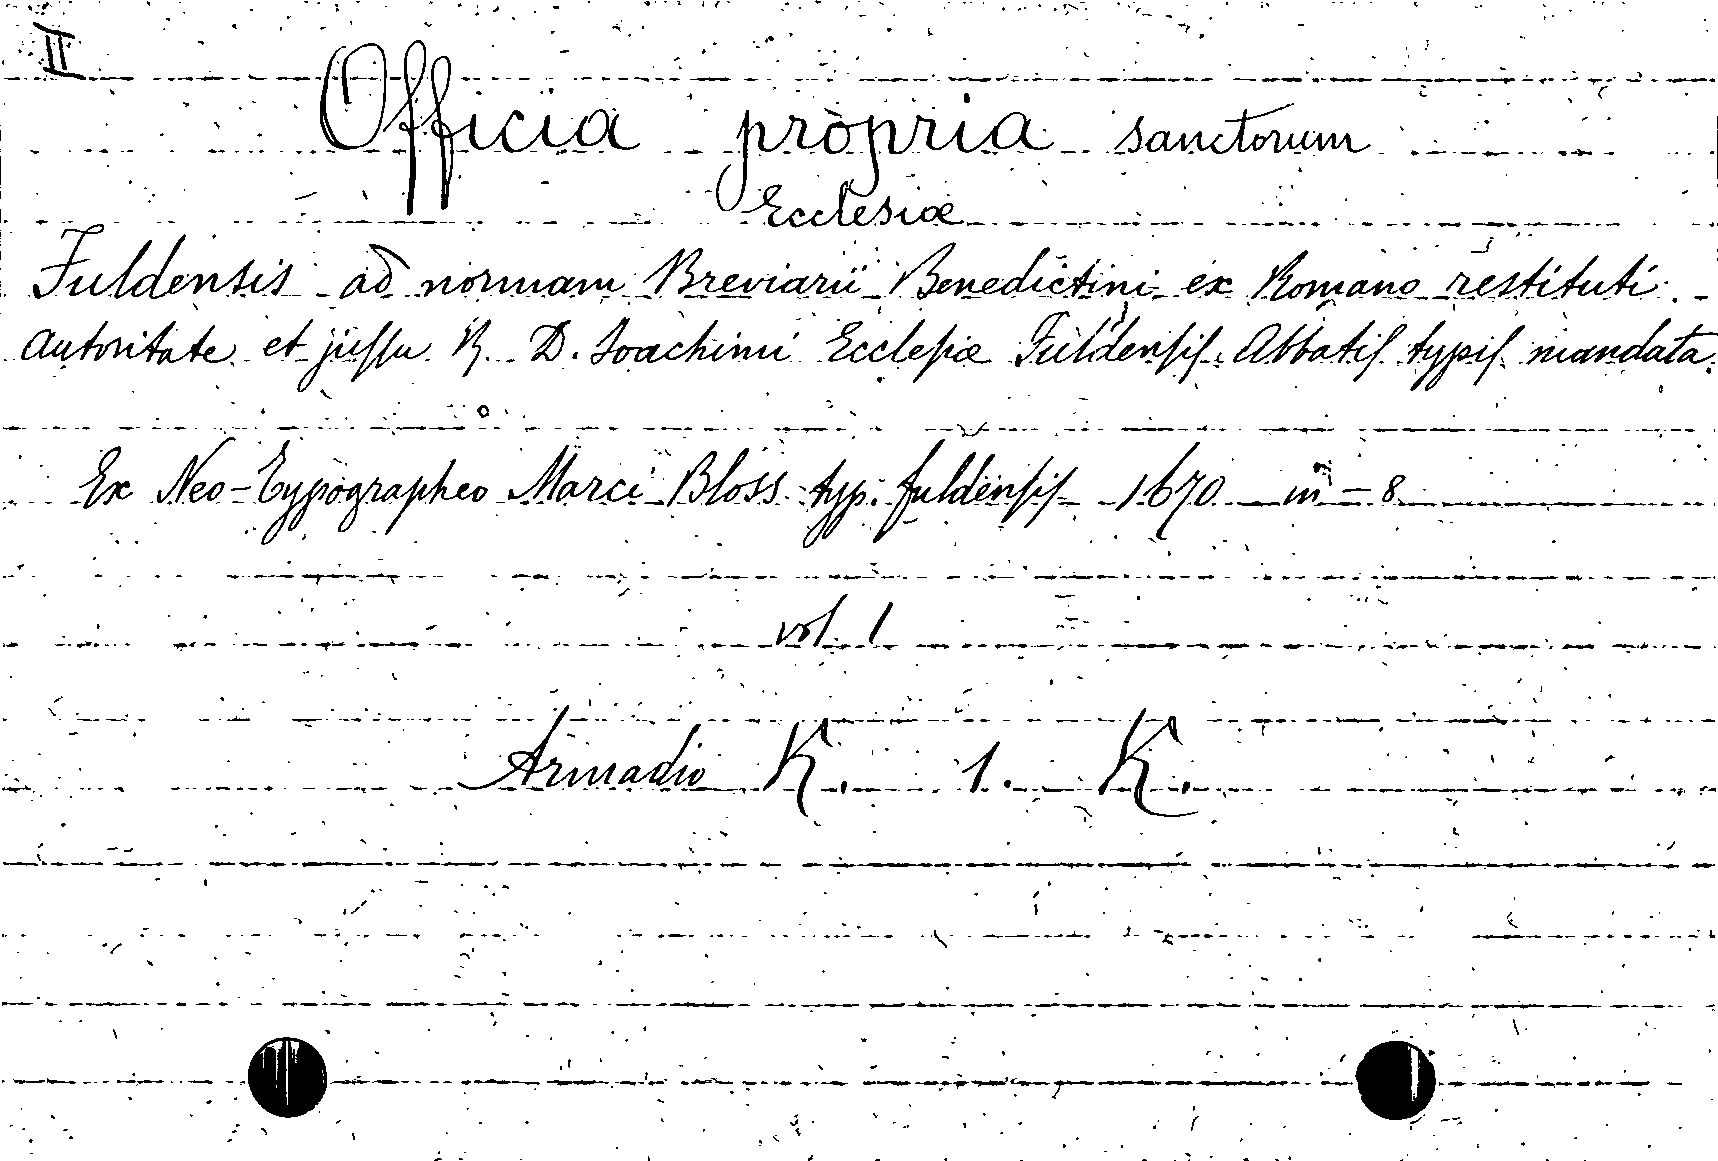 II
Officia propria sanctorum
Ecclesiæ
Fuldensis ad normam Breviarii Benedictini ex Romano restituti
autoritate et juſſu R. D. Joachimi Eccleſiæ Fuldenſiſ Abbatiſ typiſ mandata.
Ex Neo-Typographeo Marci Bloss typ. fuldenſiſ 1670 in-8
vol. 1
Armadio K. 1. K.